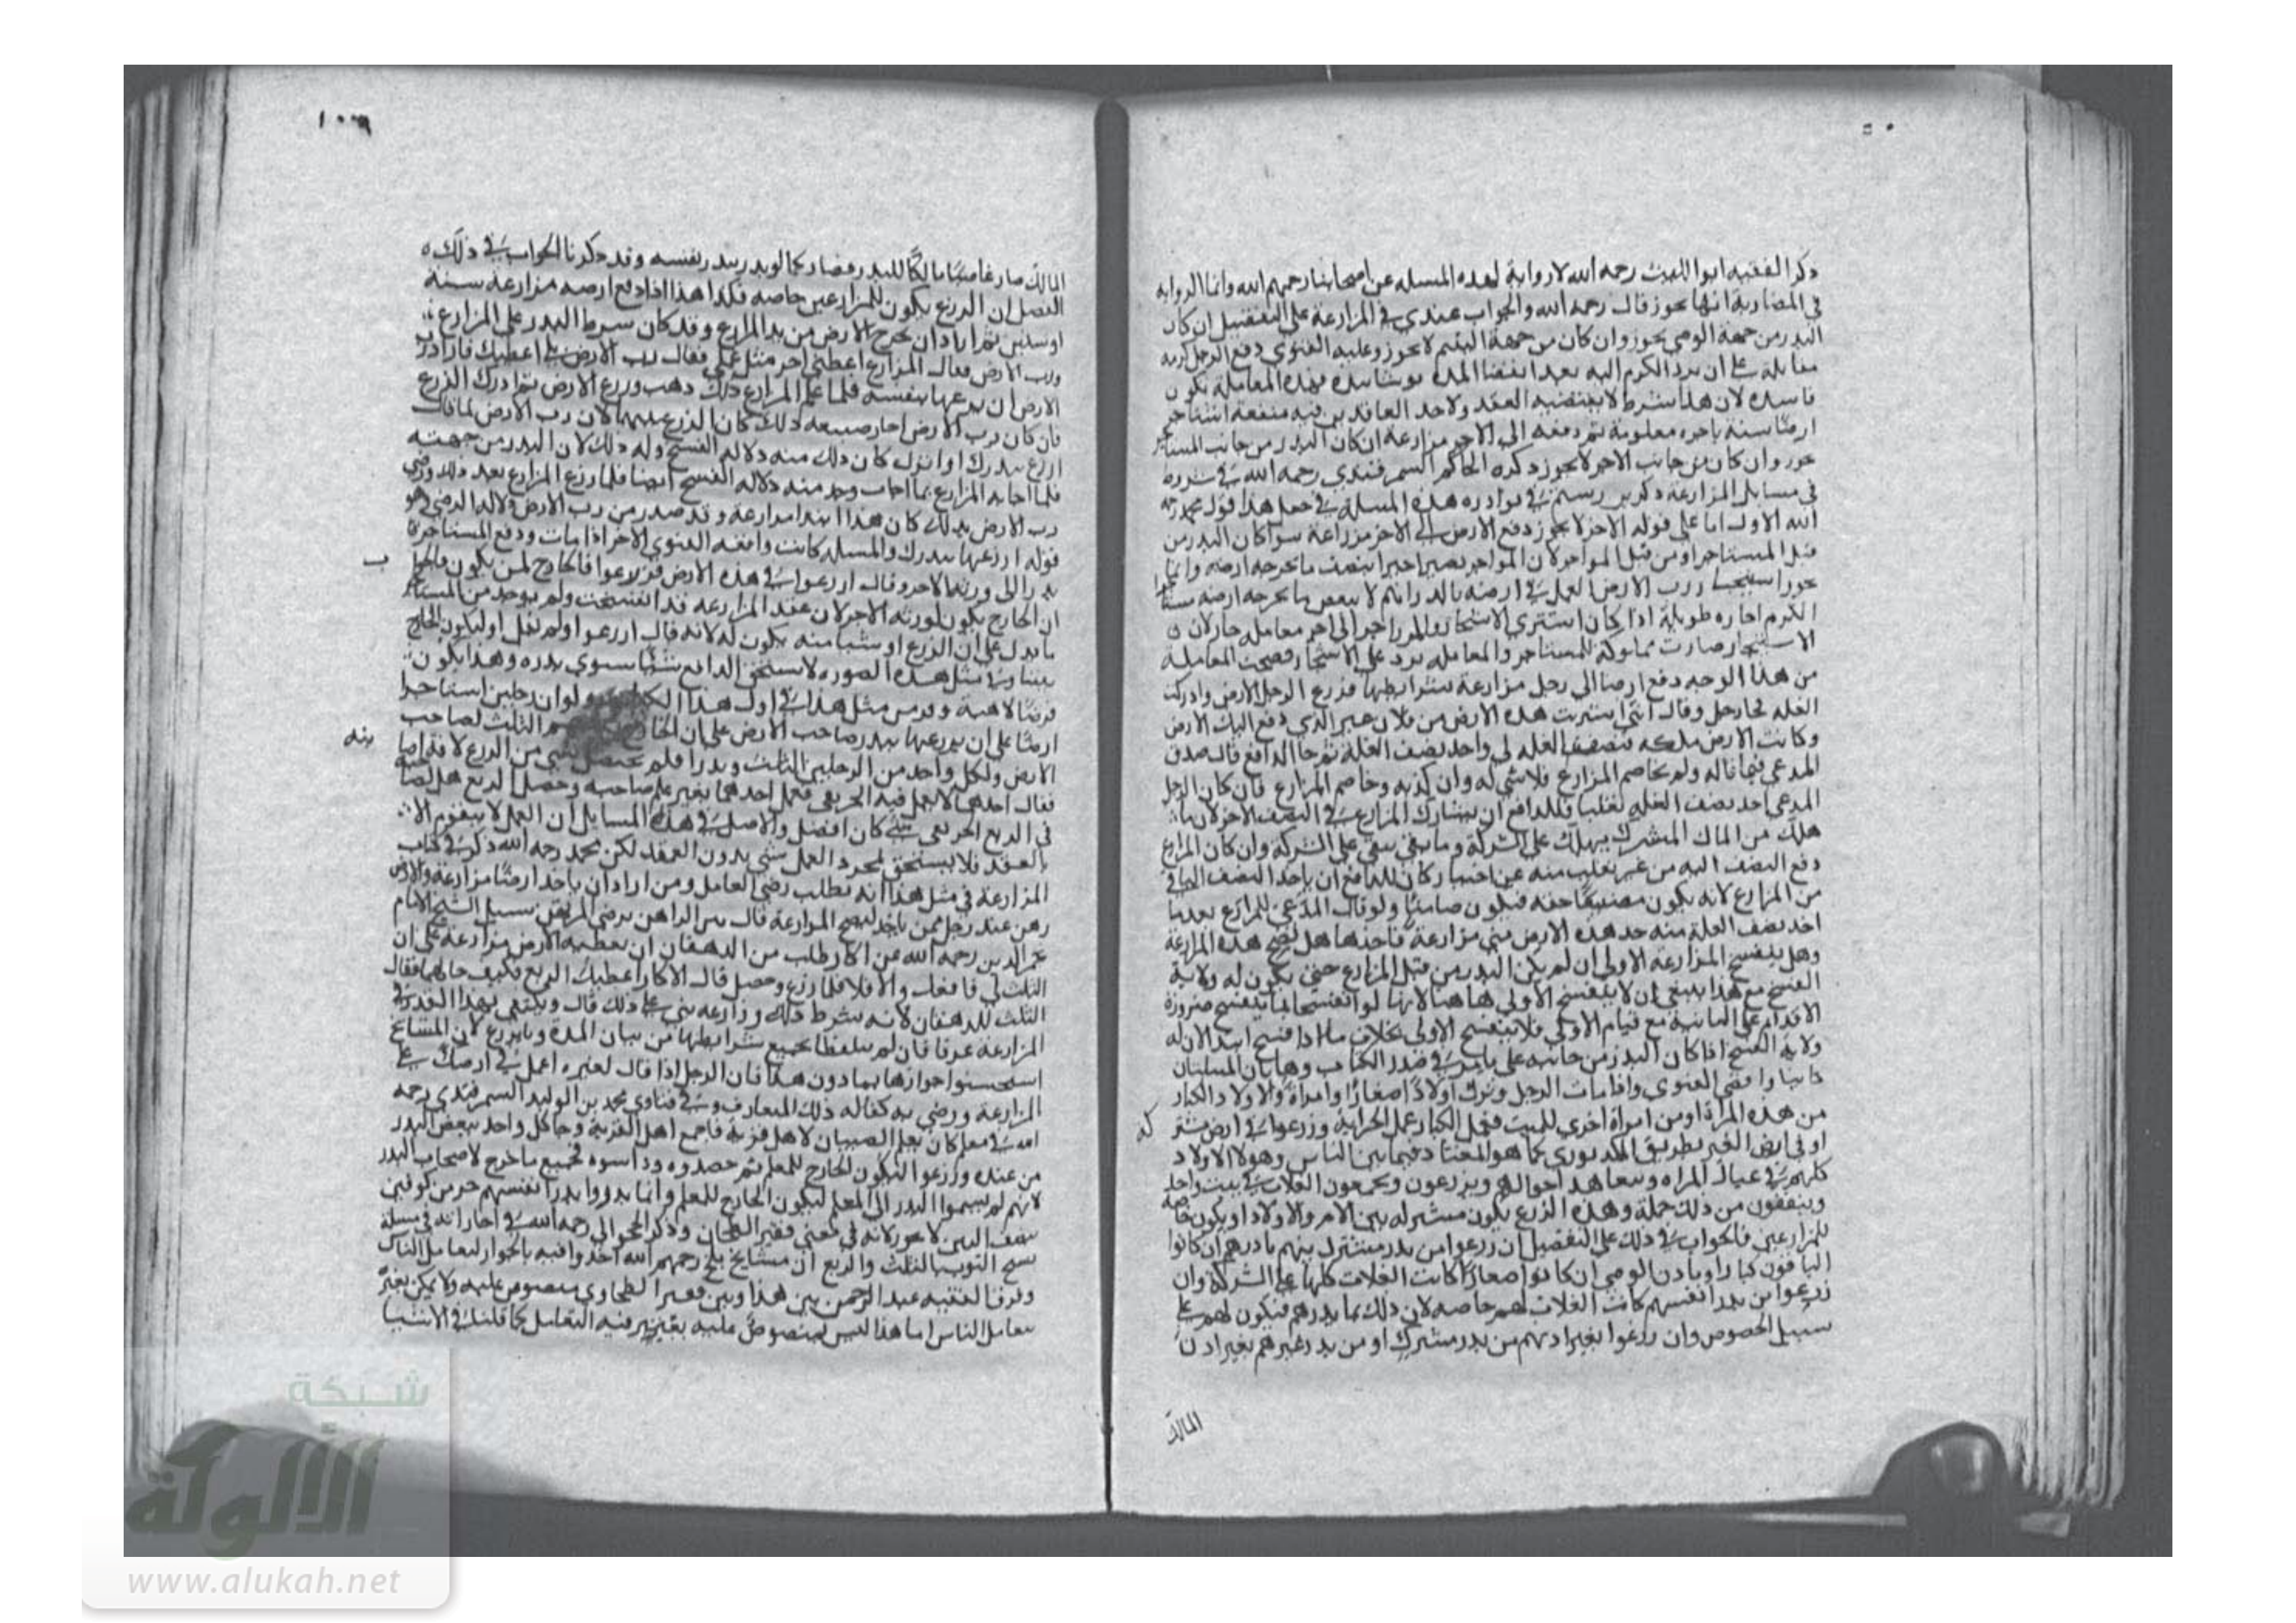 ذكر الفقيه ابوا الليث رحمه الله لا رواية لهذه المسله عن اصحابنا رحمهم الله وانما الروايه
في المضاربة انها تجوز قال رحمه الله والجواب عندي في المزارعة على التفصيل ان كان
البدر من جهة الوصي يجوز وان كان من جهة اليتيم لا يجوز وعليه الفتوي دفع الرجل كرمه
معاملة على ان يرد الكرم اليه بعد انقضا المدة فهذه المعاملة يكون
فاسدة لان هذا شرط لا يقتضيه العقد ولاحد العاقدين فيه منفعة استاجر
ارضا سنة باجره معلومة ثم دفعه الى الاجر مزارعة ان كان البدر من جانب المستاجر
يجوز وان كان من جانب الاجر لا يجوز ذكره الحاكم السمرقندي رحمه الله في شروطه
في مسايل المزارعة ذكر بن رستم في نوادره هذه المسلة في جعل هذا قول محمد رحمه
الله الاول اما على قوله الاخر لا يجوز دفع الارض الى الاجر مزارعة سوا كان البدر من
قبل المستاجر او من قبل المواجر لان المواجر يصير اجيرا بنصف ما تخرجه ارضه وانما
رب الارض العمل في ارضه بالدراهم لا ببعض ما تخرجه ارضه
الكرم اجاره طويلة اذا كان اشتري الاشجار الى اجر معاملة جاز لان
الاشجار صارت مملوكة للمستاجر والمعاملة ترد على الاشجار فصحت المعاملة
من هذا الوجه دفع ارضا الى رجل مزارعة بشرايطها فزرع الرجل الارض وادركت
الغله فجا رجل وقال اني اشتريت هذه الارض من فلان غير الذي دفع اليك الارض
وكانت الارض ملكه فنصف الغله لي واخد نصف الغلة ثم جا الدافع قال صدق
المدعي فيما قاله ولم يخاصم المزارع فلا شي له وان كذبه وخاصم المزارع فان كان الرجل
المدعي اخد نصف الغله تغلبا فللدافع ان يشارك المزارع في النصف الاخر لان ما
هلك من المال المشترك يهلك على الشركة وما بقي يبقى على الشركة وان كان المزارع
دفع النصف اليه من غير تغليب منه عن اختيار كان للدافع ان ياخد النصف الباقي
من المزارع لانه يكون مضيعا حقه فيكون ضامنا ولو قال المدعي للمزارع بعدما
اخد نصف الغلة منه خد هذه الارض مني مزارعة فاخذها هل تصح هذه المزارعة
وهل ينفسخ المزارعة الاولي ان لم يكن البدر من قبل المزارع حتي يكون له ولاية
الفسخ مع هذا ينبغي ان لا ينفسخ الاولي هاهنا لانها لو انفسخت انما ينفسخ ضرورة
الاقدام على الثانية مع قيام الاولي فلا ينفسخ الاولى بخلاف ما اذا فسخ ابتدا لان له
ولاية الفسخ اذا كان البدر من جانبه على ما مر في صدر الكتاب وهاتان المسلتان
الفتوي واذا مات الرجل وترك اولادا صغارا وامراة والاولاد الكبار
من هذه المراة او من امراة اخري للميت فعمل الكبار عمل الحراثة وزرعوا في ارض مشتركه
او في ارض الغير بطريق الكديوري كما هو المعتاد فيما بين الناس وهولا الاولاد
كلهم في عيال المراه وتتعاهد احوالهم ويزرعون ويجمعون الغلات في بيت واحد
وينفقون من ذلك جملة وهذه الزرع يكون مشتركه بين الام والاولاد او يكون خاصة
للمزارعين فالجواب في ذلك على التفصيل ان زرعوا من بدر مشترك بينهم باذنهم ان كانوا
الباقون كبارا وباذن الوصي ان كانوا صغارا كانت الغلات كلها على الشركة وان
زرعوا من بدر انفسهم كانت الغلات لهم خاصه لان ذلك نما بدرهم فيكون لهم على
سبيل الخصوص وان زرعوا بغير اذنهم من بدر مشترك او من بدر غيرهم بغير اذن
المالك
١٠٠٩
المالك صار غاصبا مالكا للبدر فصار كما لو بدر ببدر نفسه وقد ذكرنا الجواب في ذلك
الفصل ان الزرع يكون للمزارعين خاصه فكدا هذا اذا دفع ارضه مزارعة سنة
او سنتين ثم اراد ان يخرج الارض من يد المزارع وقد كان شرط البدر على المزارع
ورب الارض فقال المزارع اعطني اجر مثل عملي فقال رب الارض اعطيك فاراد رب
الارض ان يزرعها بنفسه فلما علم المزارع ذلك ذهب وزرع الارض ثم ادرك الزرع
فان كان رب الارض اجاز صنيعه ذلك كان الزرع بينهما لان رب الارض لما قال
ازرع ببدرك او اترك كان ذلك منه دلالة الفسخ وله ذلك لان البدر من جهته
فلما اجابه المزارع بما اجاب وجد منه دلالة الفسخ ايضا فلما زرع المزارع بعد ذلك ورضي
رب الارض بذلك كان هذا ابتدا مزارعة وقد صدر من رب الارض دلالة الرضي وهو
قوله ازرعها ببدرك والمسله كانت واقعه الفتوي الاجر اذا مات ودفع المستاجر
بدرا الى ورثة الاجر وقال ازرعوا في هذه الارض فزرعوا فالخارج لمن يكون فالجواب
ان الخارج يكون لورثة الاجر لان عقد المزارعة قد انفسخت ولم يوجد من المستاجر
ما يدل على ان الزرع او شيا منه يكون له لانه قال ازرعوا ولم يقل ليكون الخارج
بيننا وفي مثل هذه الصورة لا يستحق الدافع شيا سوي بدره وهذا يكون
قرضا لا هبة وقد مر مثل هذا في اول هذا ولو ان رجلين استاجرا
ارضا على ان يزرعها ببدر صاحب الارض على ان الثلث لصاحب
الارض ولكل واحد من الرجلين الثلث وبدرا فلم يحصل شي من الزرع لافة اصابته
فقال احدهما لا نعمل فيه الخريفي فعمل احدهما بغير علم صاحبه وحصل الريع هل لصاحبه
في الريع الخريفي شي كان افضل والاصل في هذه المسايل ان العمل لا يتقوم الا
بالعقد فلا يستحق بمجرد العمل شي بدون العقد لكن محمد رحمه الله ذكر في كتاب
المزارعة في مثل هذا انه يطلب رضي العامل ومن اراد ان ياخد ارضا مزارعة والارض
رهن عند رجل ممن ياخد لتصح المزارعة قال من الراهن برضي المرتهن سيل الشيخ الامام
نجم الدين رحمه الله عن اكار طلب من الدهقان ان يعطيه الارض مزارعة على ان
الثلث لي فافعل والا فلا فلما زرع وحصل قال الاكار اعطيك الربع فكيف حالهما فقال
الثلث للدهقان لانه شرط ذلك وزارعه بني على ذلك قال ويكتفي بهذا القدر في
المزارعة عرفا فان لم يتلفظا بجميع شرايطها من بيان المدة وما يزرع لان المشايخ
استحسنوا جوازها بما دون هذا فان الرجل اذا قال لغيره اعمل في ارضك على
المزارعة ورضي به كفاله ذلك المتعارف وفي فتاوي محمد بن الوليد السمرقندي رحمه
الله في معلم كان يعلم الصبيان لاهل قرية فاجمع اهل القرية وجا كل واحد ببعض البدر
من عنده وزرعوا ليكون الخارج للمعلم ثم حصدوه وداسوه فجميع ما خرج لاصحاب البدر
لانهم لم يسلموا البدر الى المعلم ليكون الخارج للمعلم وانما بدروا بدر انفسهم
لا يجوز لانه في معني قفيز الطحان وذكر رحمه الله في اجاراته في مسلة
نسج الثوب بالثلث والربع ان مشايخ بلخ رحمهم الله اخدوا فيه بالجواز لتعامل الناس
وفرق الفقيه عبد الرحمن بين هذا وبين قفيز الطحان منصوص عليه ولا يمكن تغير
بتعامل الناس اما هذا ليس بمنصوص عليه يعتبر فيه التعامل كما قلنا في الاشيا
شبكة
الألوكة
www.alukah.net